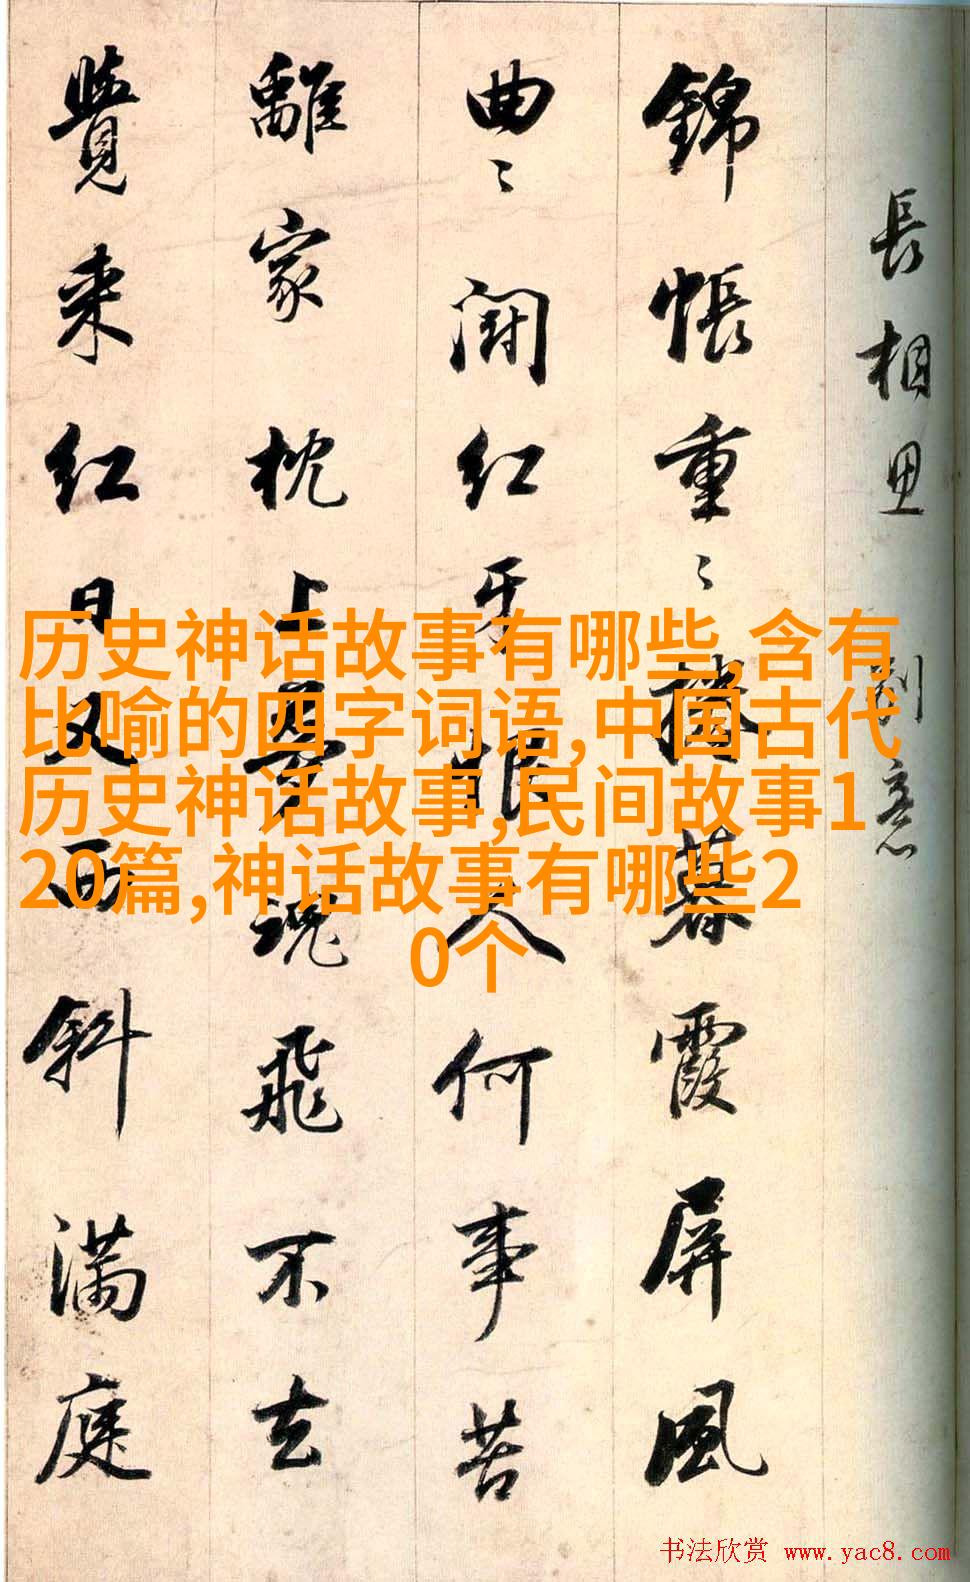 長相思 別意
錦帳重〻捲暮霞屏風
曲〻鬪紅牙恨人何事苦
離家枕上夢魂飛不去
覺來紅日又西斜滿庭
历史神话故事有哪些,含有
比喻的四字词语,中国古代
历史神话故事,民间故事1
20篇,神话故事有哪些2
0个
书法欣赏 www.yac8.com